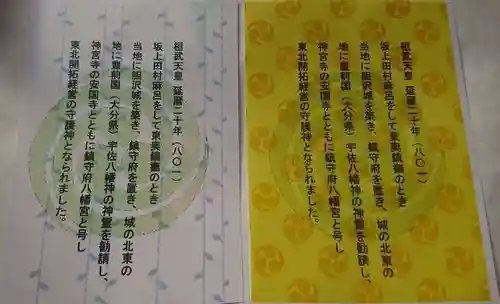 桓武天皇 延暦二十年（八〇一）
坂上田村麻呂をして東奥鎮撫のとき
当地に胆沢城を築き、鎮守府を置き、城の北東の
地に豊前国（大分県）宇佐八幡神の神霊を勧請し、
神宮寺の安国寺とともに鎮守府八幡宮と号し
東北開拓経営の守護神となられました。
桓武天皇 延暦二十年（八〇一）
坂上田村麻呂をして東奥鎮撫のとき
当地に胆沢城を築き、鎮守府を置き、城の北東の
地に豊前国（大分県）宇佐八幡神の神霊を勧請し、
神宮寺の安国寺とともに鎮守府八幡宮と号し
東北開拓経営の守護神となられました。